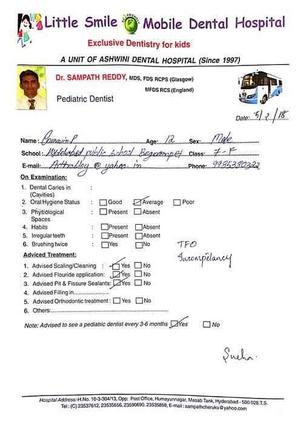 Little Smile Mobile Dental Hospital
Exclusive Dentistry for kids
A UNIT OF ASHWINI DENTAL HOSPITAL (Since 1997)
Dr. SAMPATH REDDY, MDS, FDS RCPS (Glasgow)
MFDS RCS (England)
Pediatric Dentist
Date: 5/2/18
Name: Age: 12 Sex: Male
School: public school Begumpet Class: 7-
E-mail: @yahoo.in Phone:
On Examination:
1. Dental Caries in (Cavities) :
2. Oral Hygiene Status : Good Average Poor
3. Phytological Spaces : Present Absent
4. Habits : Present Absent
5. Irregular teeth : Present Absent
6. Brushing twice : Yes No
TFO
Adviced Treatment:
1. Advised Scaling/Cleaning : Yes No
2. Advised Flouride application: Yes No
3. Advised Pit & Fissure Sealants: Yes No
4. Advised Filling in
5. Advised Orthodontic treatment : Yes No
6. Others:
Note: Advised to see a pediatric dentist every 3-6 months Yes No
Sneha
Hospital Address: H.No. 10-3-304/13, Opp: Post Office, Humayunnagar, Masab Tank, Hyderabad - 500 028 T.S.
Tel: (C) 23537612, 23535656, 23590690, 23535868, E-mail: sampathcheruku@yahoo.com